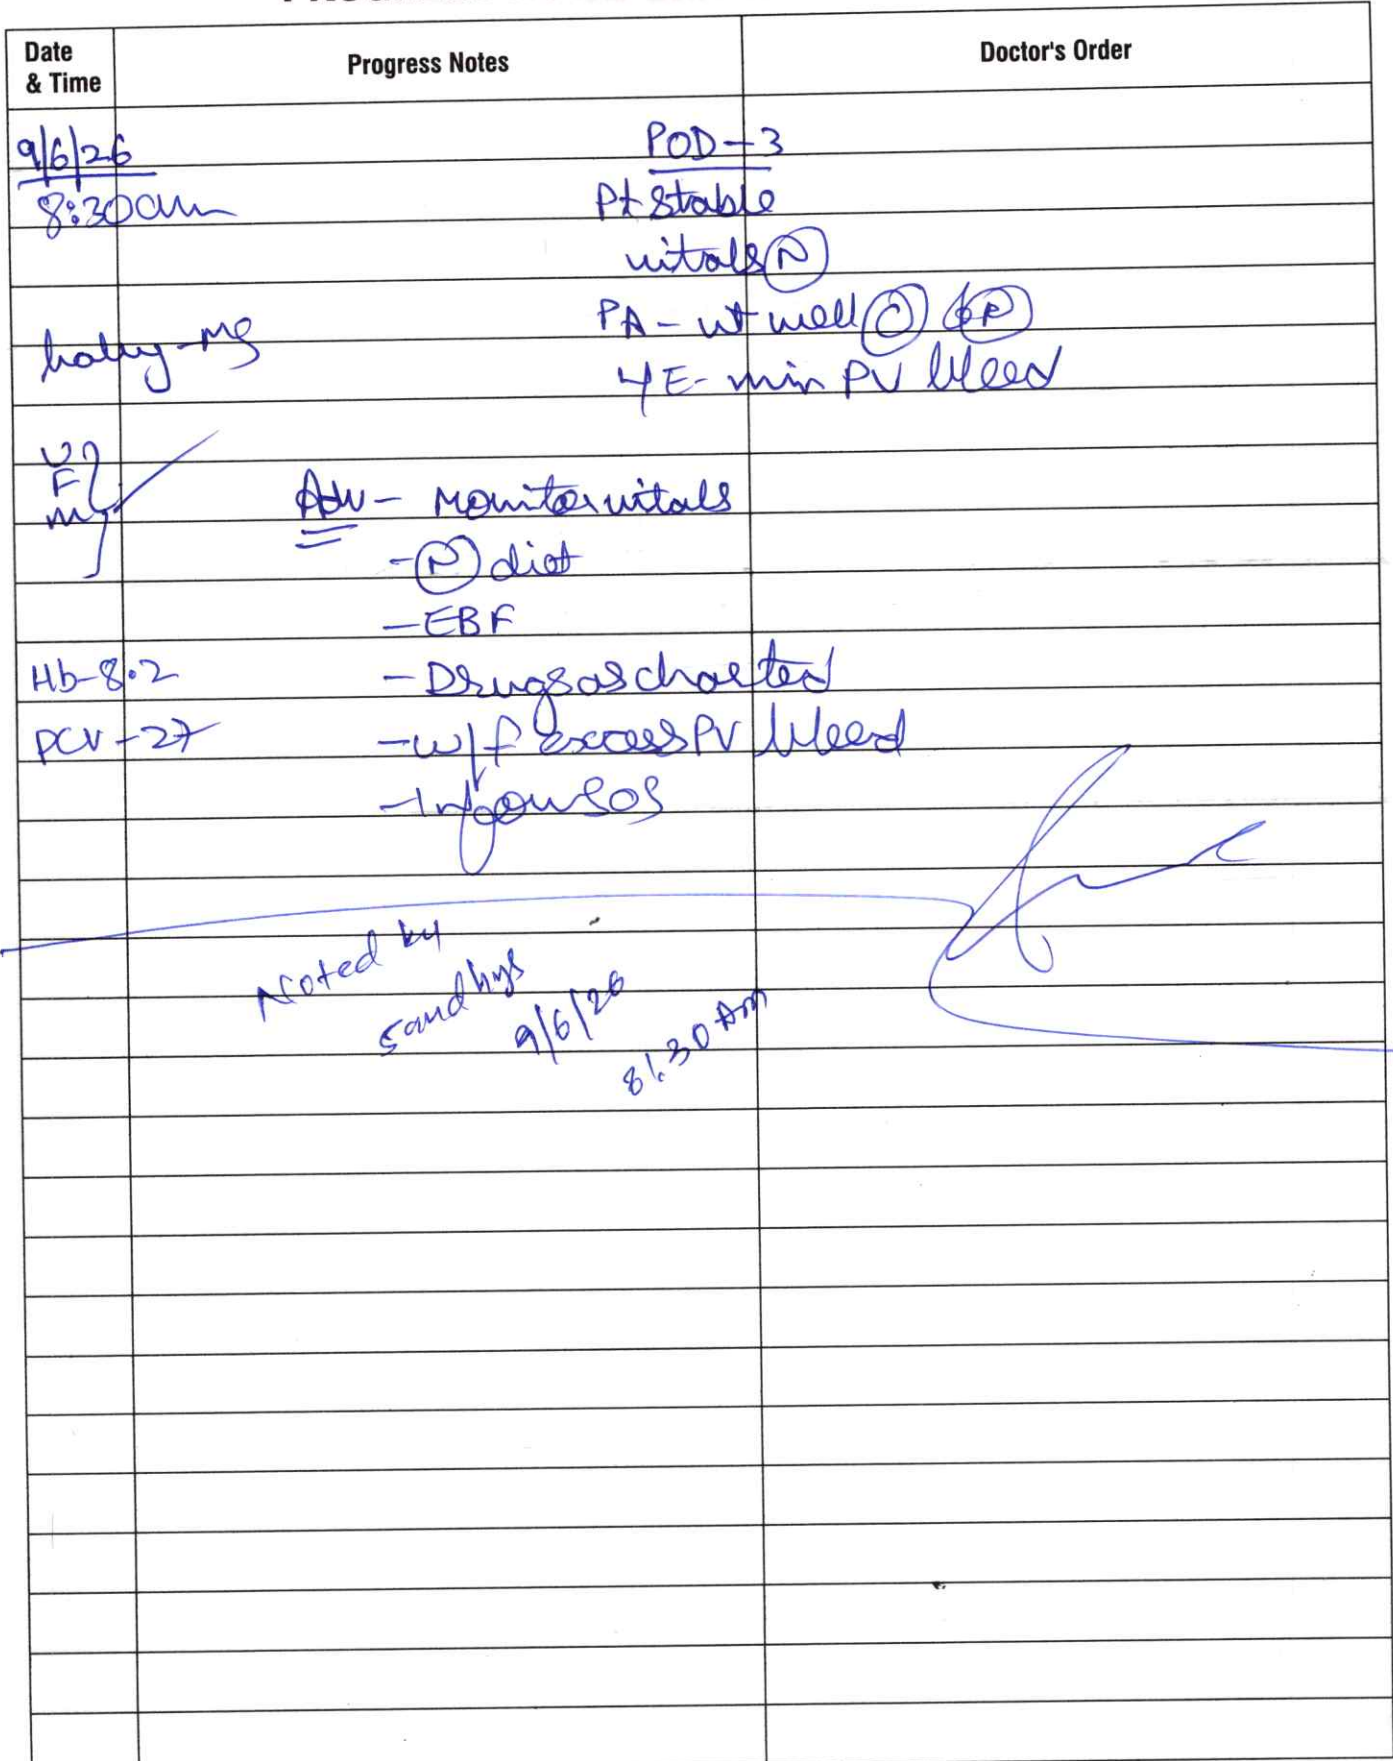 Date & Time
Progress Notes
Doctor's Order
9/6/26
8:30am
POD-3
Pt Stable
vitals (N)
PA - ut well (C)
baby - MS
L/E - min PV bleed
U
F
M
Adv - Monitor vitals
- (N) diet
- EBF
Hb-8.2
- Drugs as charted
PCV-27
- w/f excess PV bleed
- Inform SOS
Noted by
9/6/26
8:30 Am